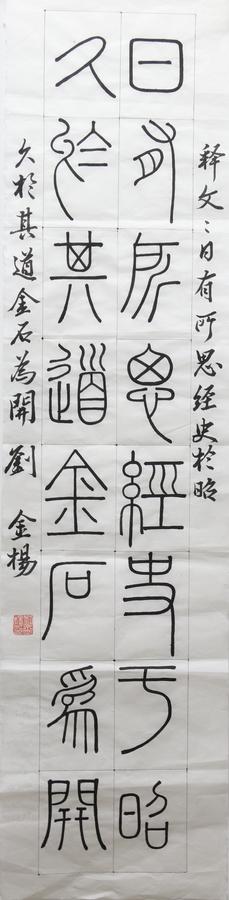 释文：日有所思經史於昭
日有所思經史于昭
久於其道金石為開
久於其道金石為開 劉金楊